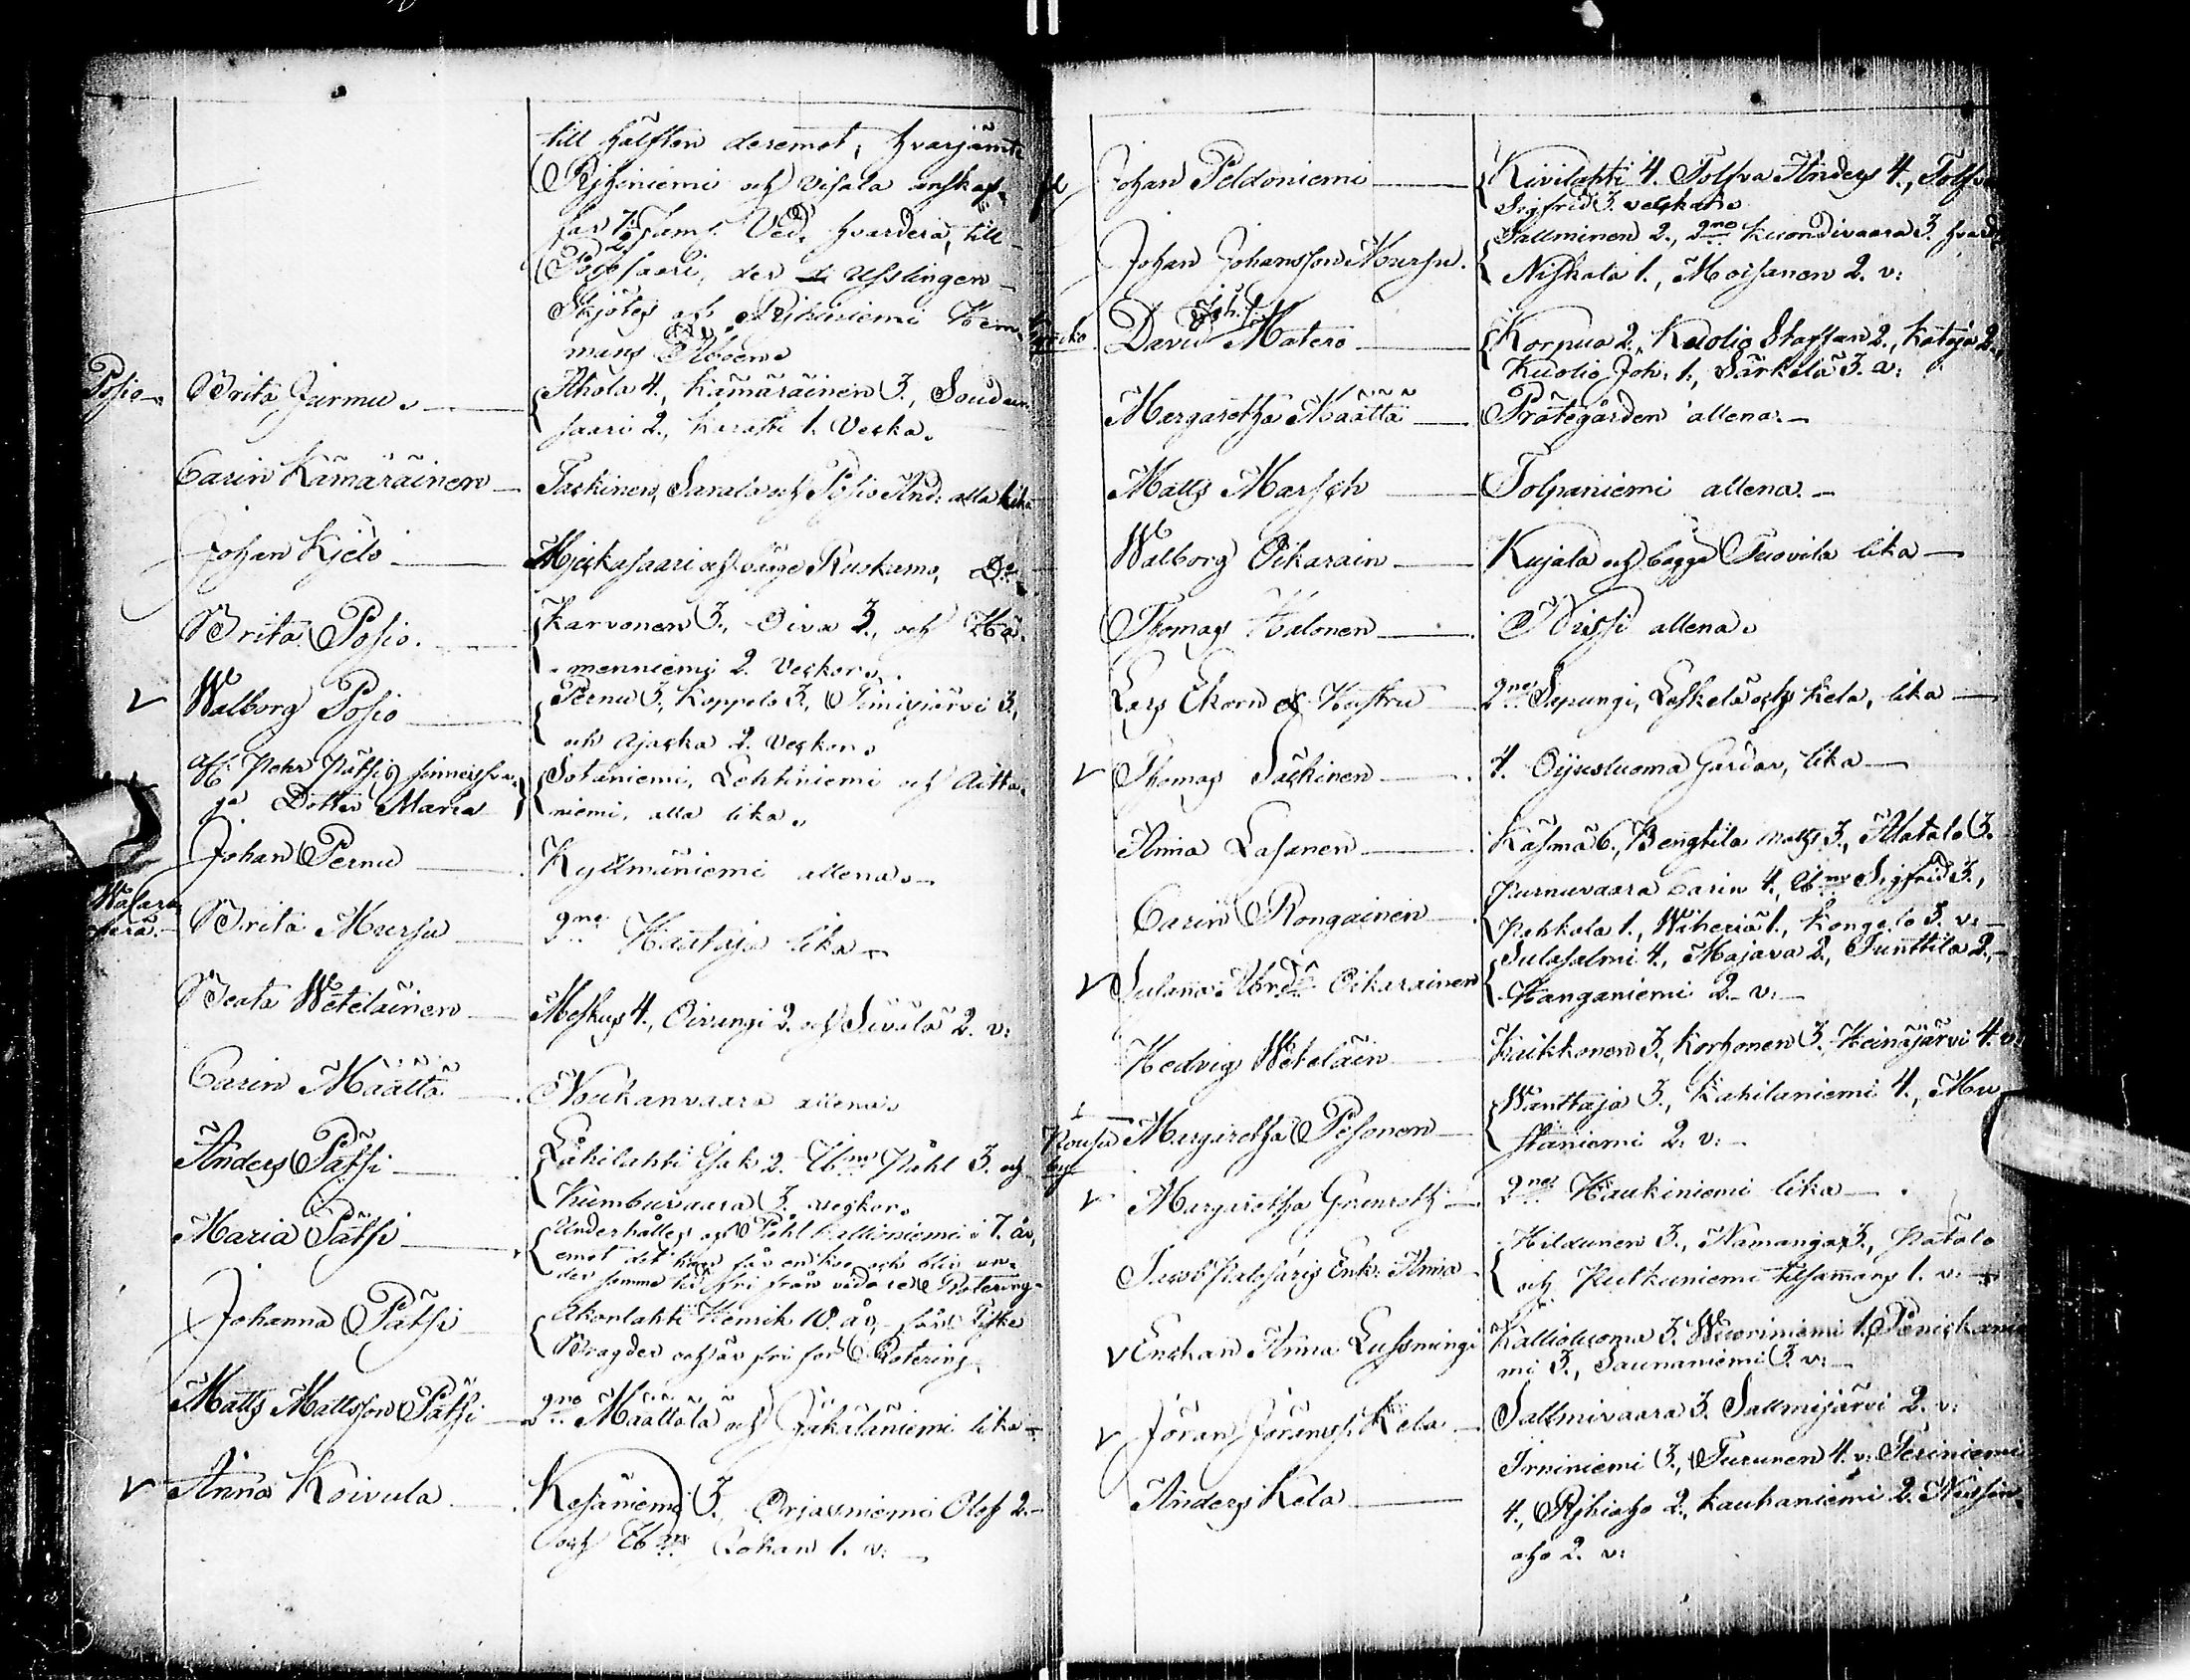 till hälften deremot, hvarjämte
Rijhiniemi och Visala enskap-
far 1/2 famf. Ved, hvardera, till
Posfsaari, der Usslingen
Skjötes af Rijhiniemi Hem-
mans Åboen.
Posio. Brita Jurmu. Ahola 4., Kämäräinen 3., Soudan-
saari 2., Karasti 1. Vecka.
Carin Kämäräinen Taskinen, Sarala och Posio And: alla lika
Johan Kjelo Hjickasaari och bägge Ruskamo, Do
Brita Posio. Karvonen 3., Oiva 3., och Hä-
menniemi 2. Veckor.
V Walborg Posio Pernu 3., Koppelo 3., Timisjärvi 3.,
och Ajacka 2. Veckor.
Afl. Pehr Pätsis sinnessva-
ga Dotter Maria Sotaniemi, Lehtiniemi och Aitta-
niemi, alla lika.
Johan Pernu Kyllmäniemi allena.
Wasara-
perä. Brita Mursu 2ne Hautajo lika
Beata Weteläinen Meskus 4., Oirungi 2. och Sivälä 2. v:
Carin Määttä Noukanvaara allena.
Anders Pätsi Låhilahti Isak 2. Ibm Påhl 3. och
Kumbuvaara 3. veckor.
Maria Pätsi Underhålles af Påhl Kallioniemi i 7. år,
emot det han får en Ko och blir un-
der samma tid fri från vidare Rotering
Johanna Pätsi Akonlahti Henrik 10. år, får Piske
Bragder och är fri för Rotering.
Matts Mattsson Pätsi 2ne Määttälä och Jäkäläniemi lika
V Anna Koivula Kesäniemi 3., Orjasniemi Olof 2.
och Ibm Johan 1. v:
Johan Peldoniemi Kivilahti 4. Tolfva Anders 4., Tolfva
Sigfrid 3. veckor.
Johan Johansson Mursu. Tallminen 2., 2ne Kuondivaara 3. hvard.
Niskala 1., Moisanen 2. v:
David Joh:s. Matero Korpua 2., Kuolio Staffan 2., Kataja 2.,
Kuolio Joh: 1., Särkelä 3. v:
Margaretha Määttä Prästegården allena.
Matts Marsch Tolpaniemi allena.
Walborg Oikarain Kujala och begge Tuovila lika
Thomas Halonen Nissi allena.
Lars Ekorn o Hustru 2ne Sepungi, Leskelä och Kela, lika
V Thomas Säckinen 4. Oijusluoma Gårdar, lika
Anna Lasanen Käsmä 6., Bengtila Matts 3., Alatalo 3.
Carin Rongainen Purnuvaara Carin 4., Ibm Sigfrid 3.,
Pohkola 1., Wiheriä 1., Kongelo 3. v:
V Susanna Abrd:r Oikarainen Sulasalmi 4., Majava 2., Junttila 2.,
Kanganiemi 2. v:
Hedvig Wetelain Kaikkonen 3., Korhonen 3., Heinäjärvi 4. v:
Margaretha Pesonen Wanttaja 3., Kahilaniemi 4., Mu-
staniemi 2. v:
V Margaretha Grunroth 2ne Haukiniemi lika
Enk: Anna Hildunen 3., Namanga 3., Patalo
och Kulkuniemi tillsammans 1. v:
V Enckan Anna Lussmingi Kallioluoma 3. Wuoriniemi 1. Penickänie-
mi 3., Saunaniemi 3. v:
V Jöran Jöranss. Kela Sallmivaara 3. Sallmijärvi 2. v:
Anders Kela Irniniemi 3., Turunen 4. v: Teriniemi
4., Rijhiaho 2., Kauhaniemi 2. Nissin-
aho 2. v: